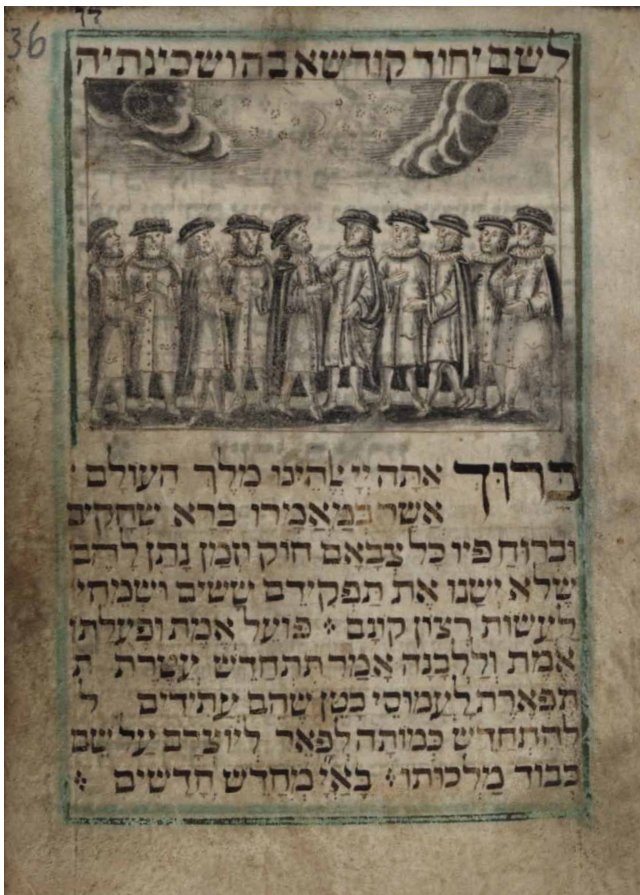 36
לשם יחוד קודשא בה ושכינתיה
בָּרוּךְ אַתָּה יְיָ אֱלֹהֵינוּ מֶלֶךְ הָעוֹלָם
אֲשֶׁר בְּמַאֲמָרוֹ בָּרָא שְׁחָקִים
וּבְרוּחַ פִּיו כָּל צְבָאָם חוֹק וּזְמַן נָתַן לָהֶם
שֶׁלֹּא יְשַׁנּוּ אֶת תַּפְקִידָם שָׂשִׂים וּשְׂמֵחִי
לַעֲשׂוֹת רְצוֹן קוֹנָם פּוֹעֵל אֱמֶת וּפְעֻלָּתוֹ
אֱמֶת וְלַלְּבָנָה אָמַר תִּתְחַדֵּשׁ עֲטֶרֶת ת
תִּפְאֶרֶת לַעֲמוּסֵי בָטֶן שֶׁהֵם עֲתִידִים ל
לְהִתְחַדֵּשׁ כְּמוֹתָהּ לְפָאֵר לְיוֹצְרָם עַל שֵׁם
כְּבוֹד מַלְכוּתוֹ בָּאַ֗יְ מְחַדֵּשׁ חֳדָשִׁים